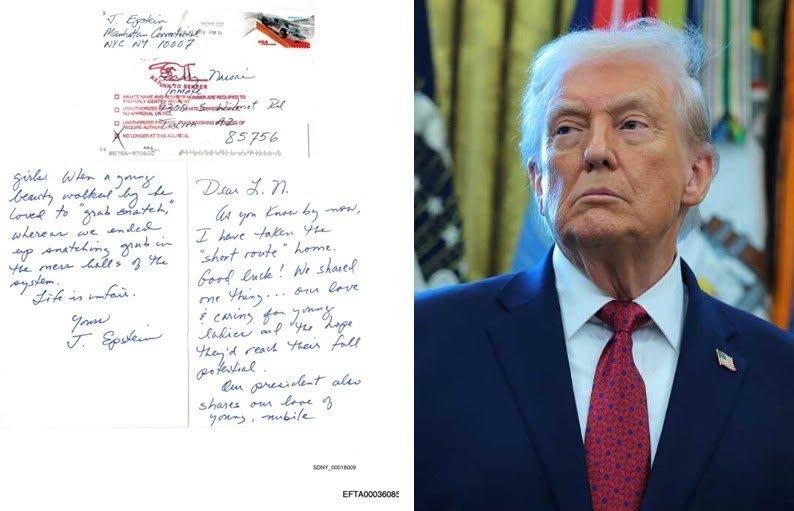 J. Epstein
Manhattan Correctional
NYC NY 10007
RETURN TO SENDER
Larry Nassar
Inmate
9300 S. Wilmot Rd
Tucson AZ
85756
INMATE NAME AND REGISTER NUMBER ARE REQUIRED TO
PROPERLY IDENTIFY
UNAUTHORIZED
NO APPROVAL ON FILE.
UNAUTHORIZED
REQUIRE AUTHORIZATION
NO LONGER AT THIS ADDRESS.
Dear L. N.
As you know by now,
I have taken the
"short route" home.
Good luck! We shared
one thing... our love
& caring for young
ladies and the hope
they'd reach their full
potential.
Our president also
shares our love of
young, nubile
girls. When a young
beauty walked by he
loved to "grab snatch,"
whereas we ended
up snatching grub in
the mess halls of the
system.
Life is unfair.
Yours
J. Epstein
SDNY_00018009
EFTA00036085